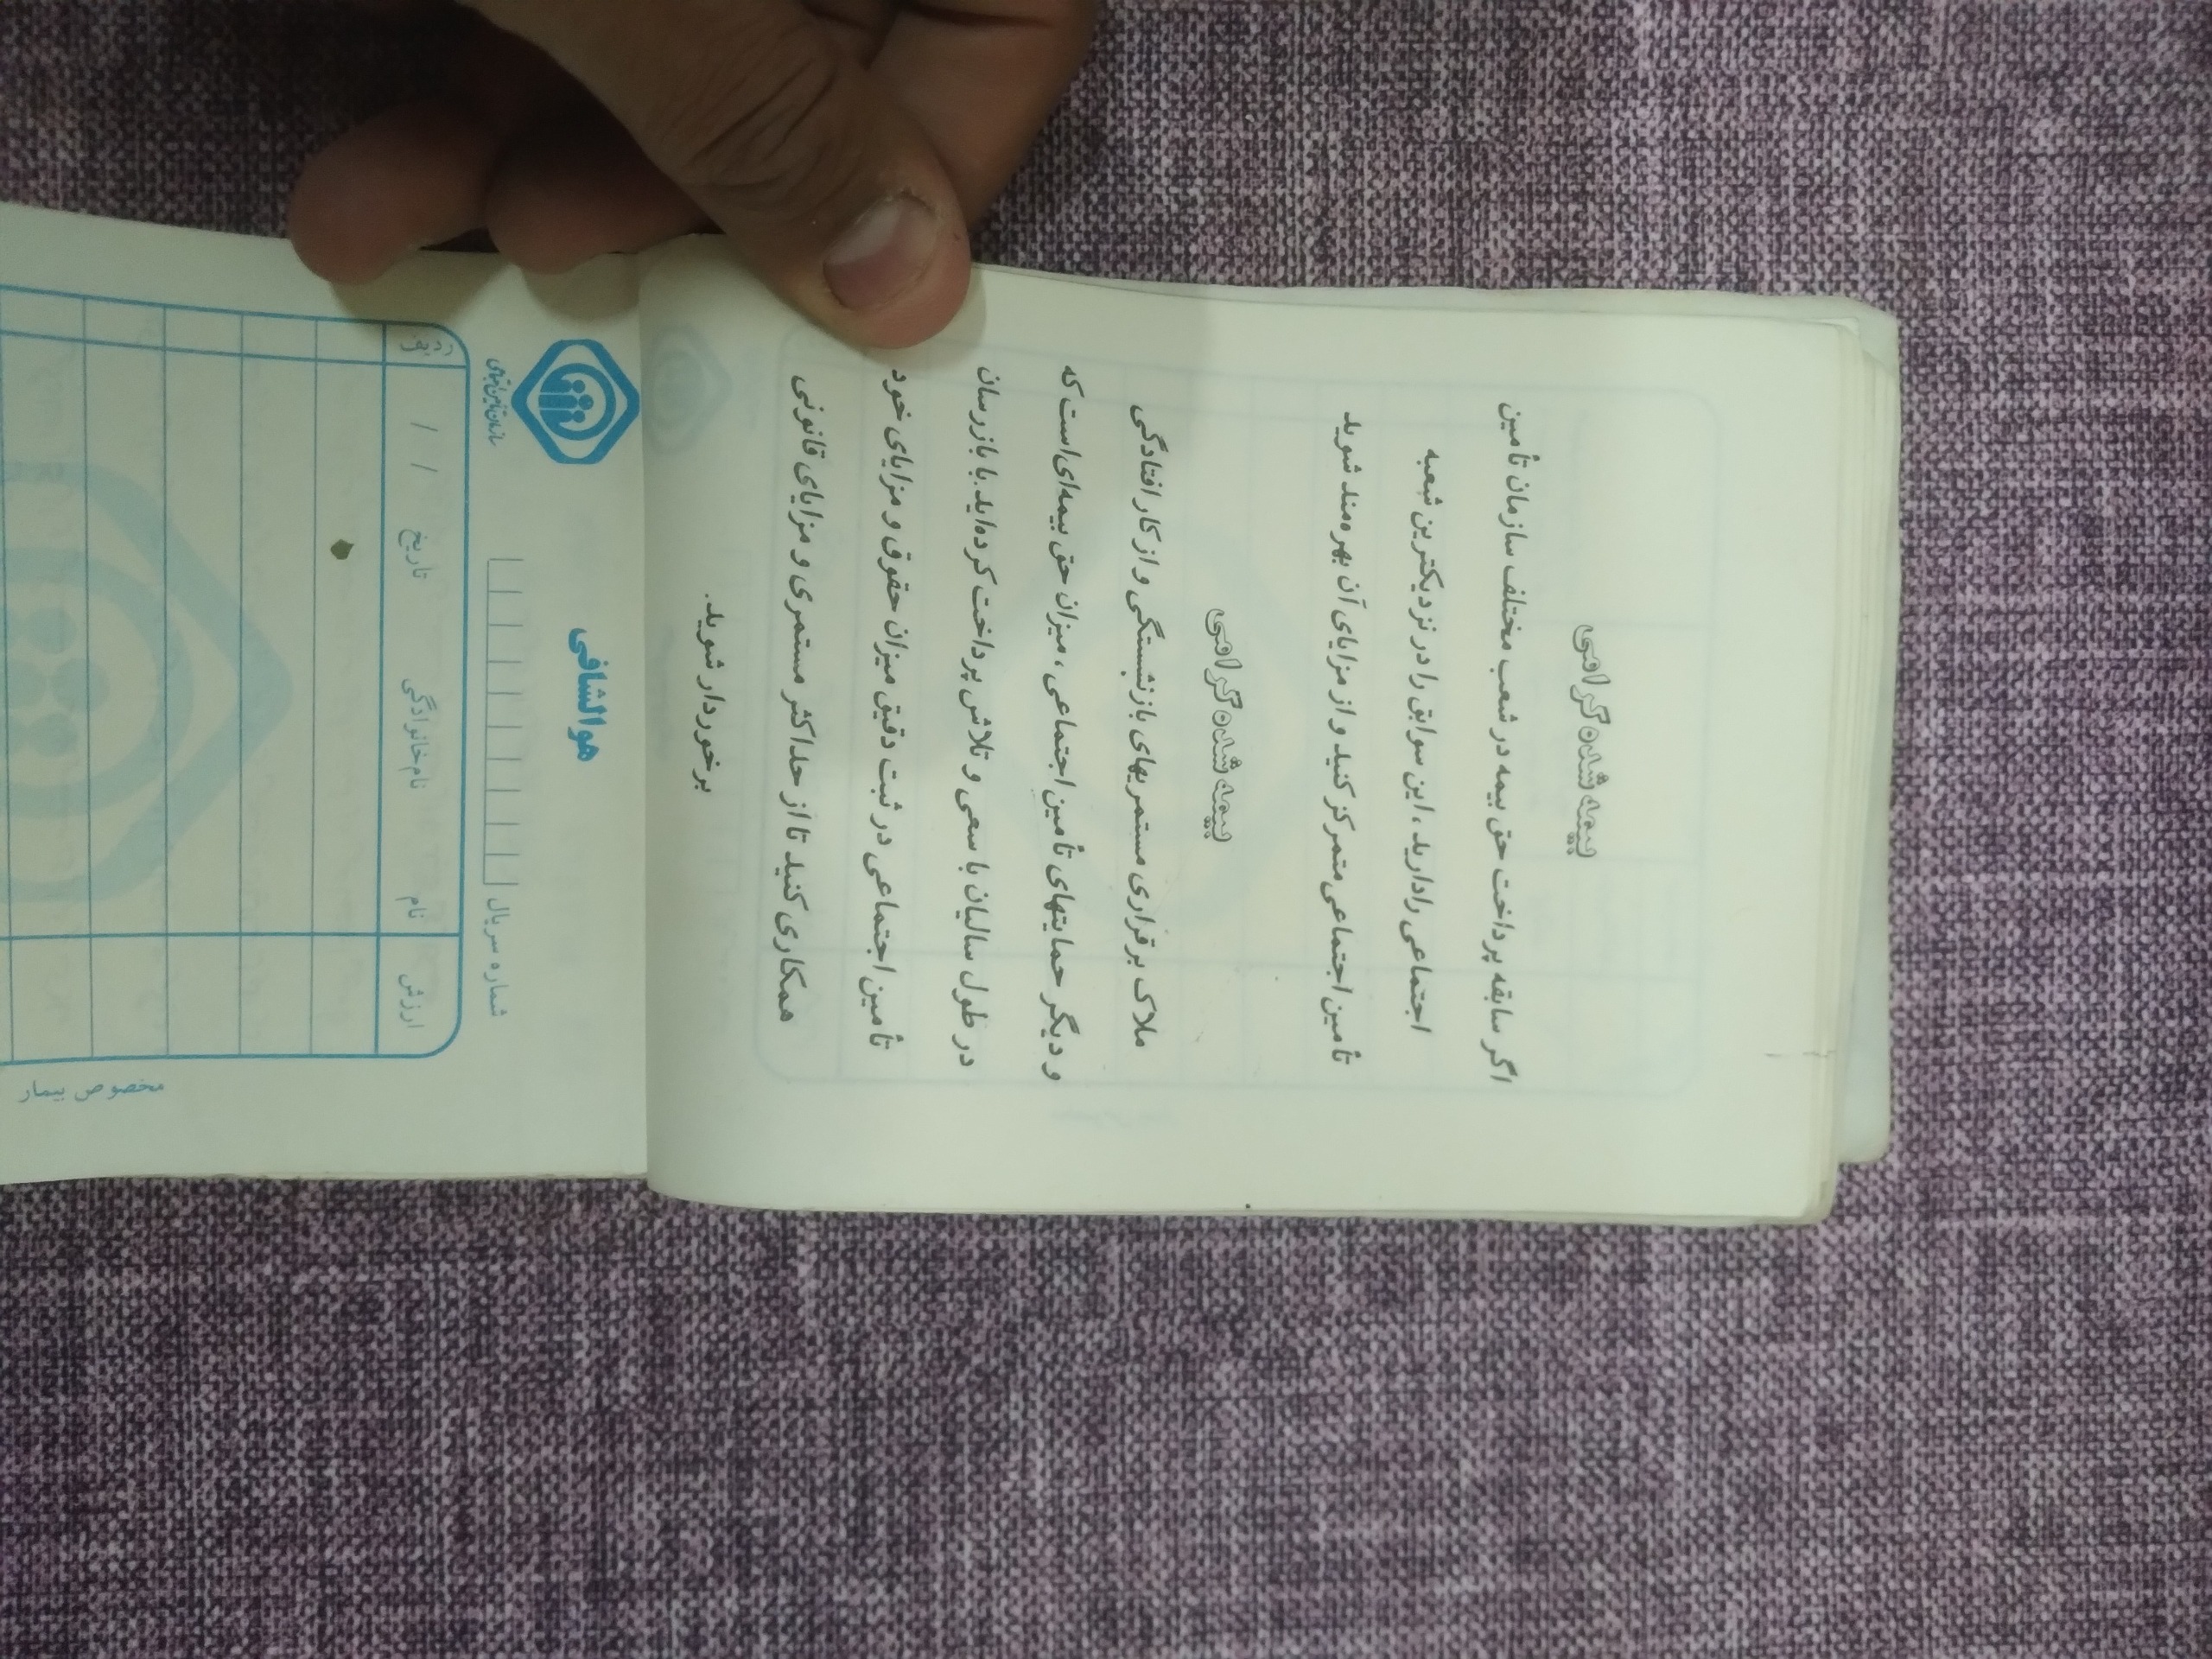 بیمه شده گرامی
اگر سابقه پرداخت حق بیمه در شعب مختلف سازمان تأمین
اجتماعی را دارید، این سوابق را در نزدیکترین شعبه
تأمین اجتماعی متمرکز کنید و از مزایای آن بهره‌مند شوید
بیمه شده گرامی
ملاک برقراری مستمریهای بازنشستگی و از کارافتادگی
و دیگر حمایتهای تأمین اجتماعی، میزان حق بیمه‌ای است که
در طول سالیان با سعی و تلاش پرداخت کرده‌اید. با بازرسان
تأمین اجتماعی در ثبت دقیق میزان حقوق و مزایای خود
همکاری کنید تا از حداکثر مستمری و مزایای قانونی
برخوردار شوید.
هوالشافی
سازمان تأمین اجتماعی
شماره سریال
ارزش نام نام خانوادگی تاریخ / /
مخصوص بیمار